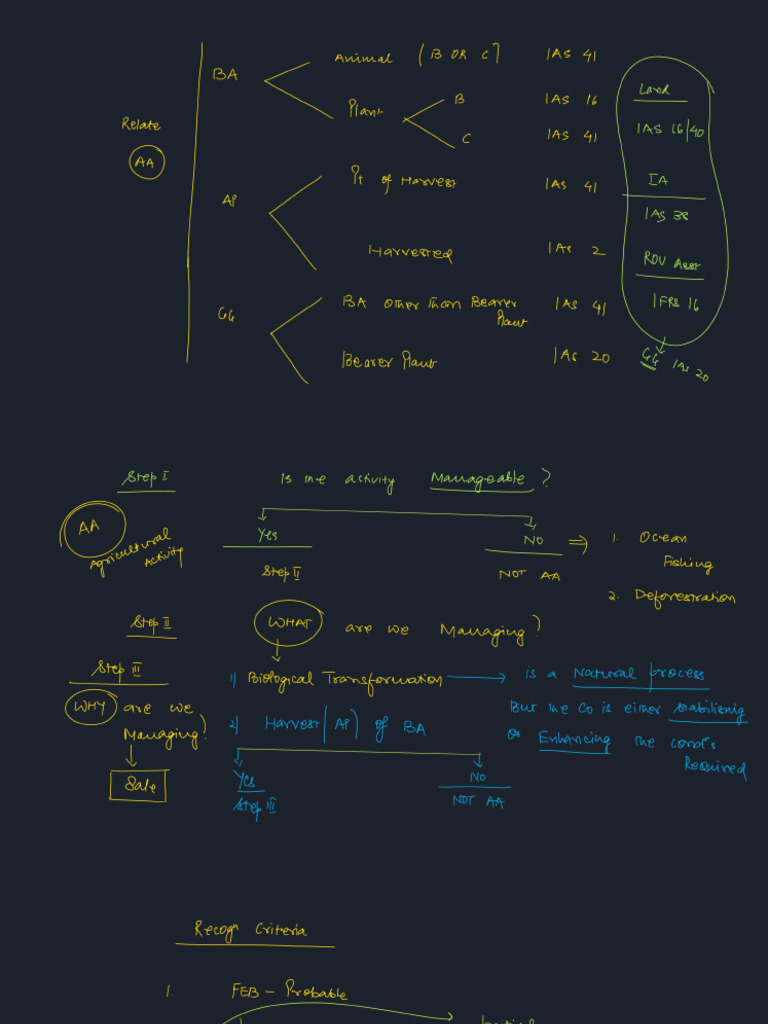 BA
Animal (B OR C] IAS 41
Plant
B IAS 16
C IAS 41
Relate
AA
AP
Pt of Harvest IAS 41
Harvested IAS 2
GG
BA other than Bearer
Plant
IAS 41
Bearer Plant IAS 20
Land
IAS 16/40
IA
IAS 38
ROU Asset
IFRS 16
GG IAS 20
Step I Is the activity Manageable?
AA
Agricultural
Activity
Yes
Step II
NO
NOT AA
1. Ocean
Fishing
2. Deforestration
Step II WHAT are we Managing?
1) Biological Transformation
is a Natural process
But the Co is either stabilising
or Enhancing the cond's
Required
2) Harvest (AP) of BA
Yes
Step III
NO
NOT AA
Step III
WHY are we
Managing?
Sale
Recogn Criteria
1. FEB - Probable
Initial